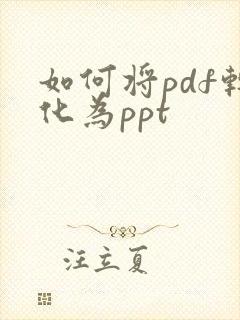 如何将pdf转
化为ppt
汪立夏